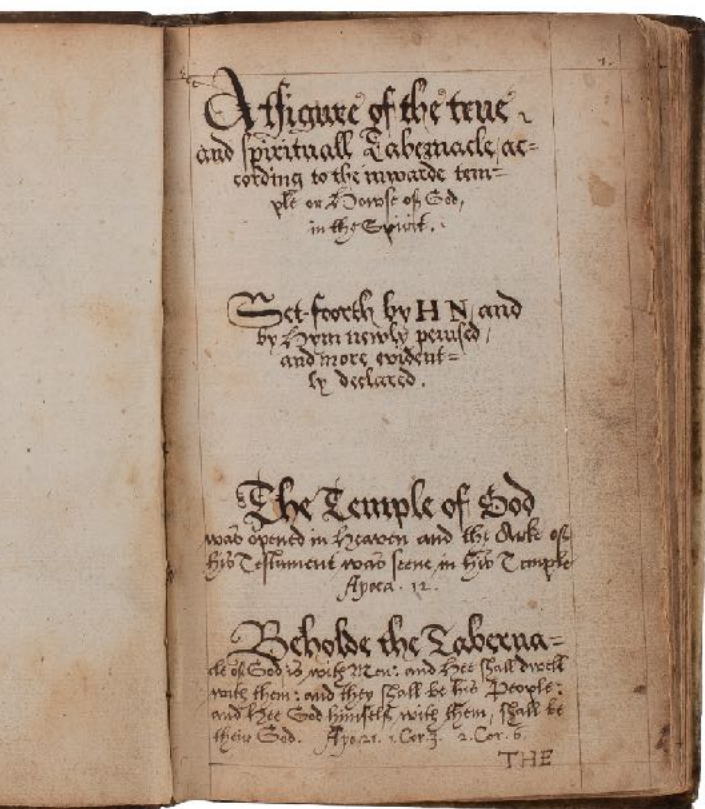 1.
A ffigure of the true
and spirituall Tabernacle, ac=
cording to the inwarde tem=
ple or Howse of God,
in the Spirit.
Set-foorth by H N, and
by Hym newly perused,
and more evident=
ly declared.
The Temple of God
was opened in Heaven and the Arke of
his Testament was seene in his Temple
Apoca. 12.
Beholde the Taberna=
cle of God is with Men: and Hee shall dwell
with them: and they shall be his People:
and Hee God himself, with them, shall be
their God. Apo. 21. 1. Cor. 3. 2. Cor. 6.
THE